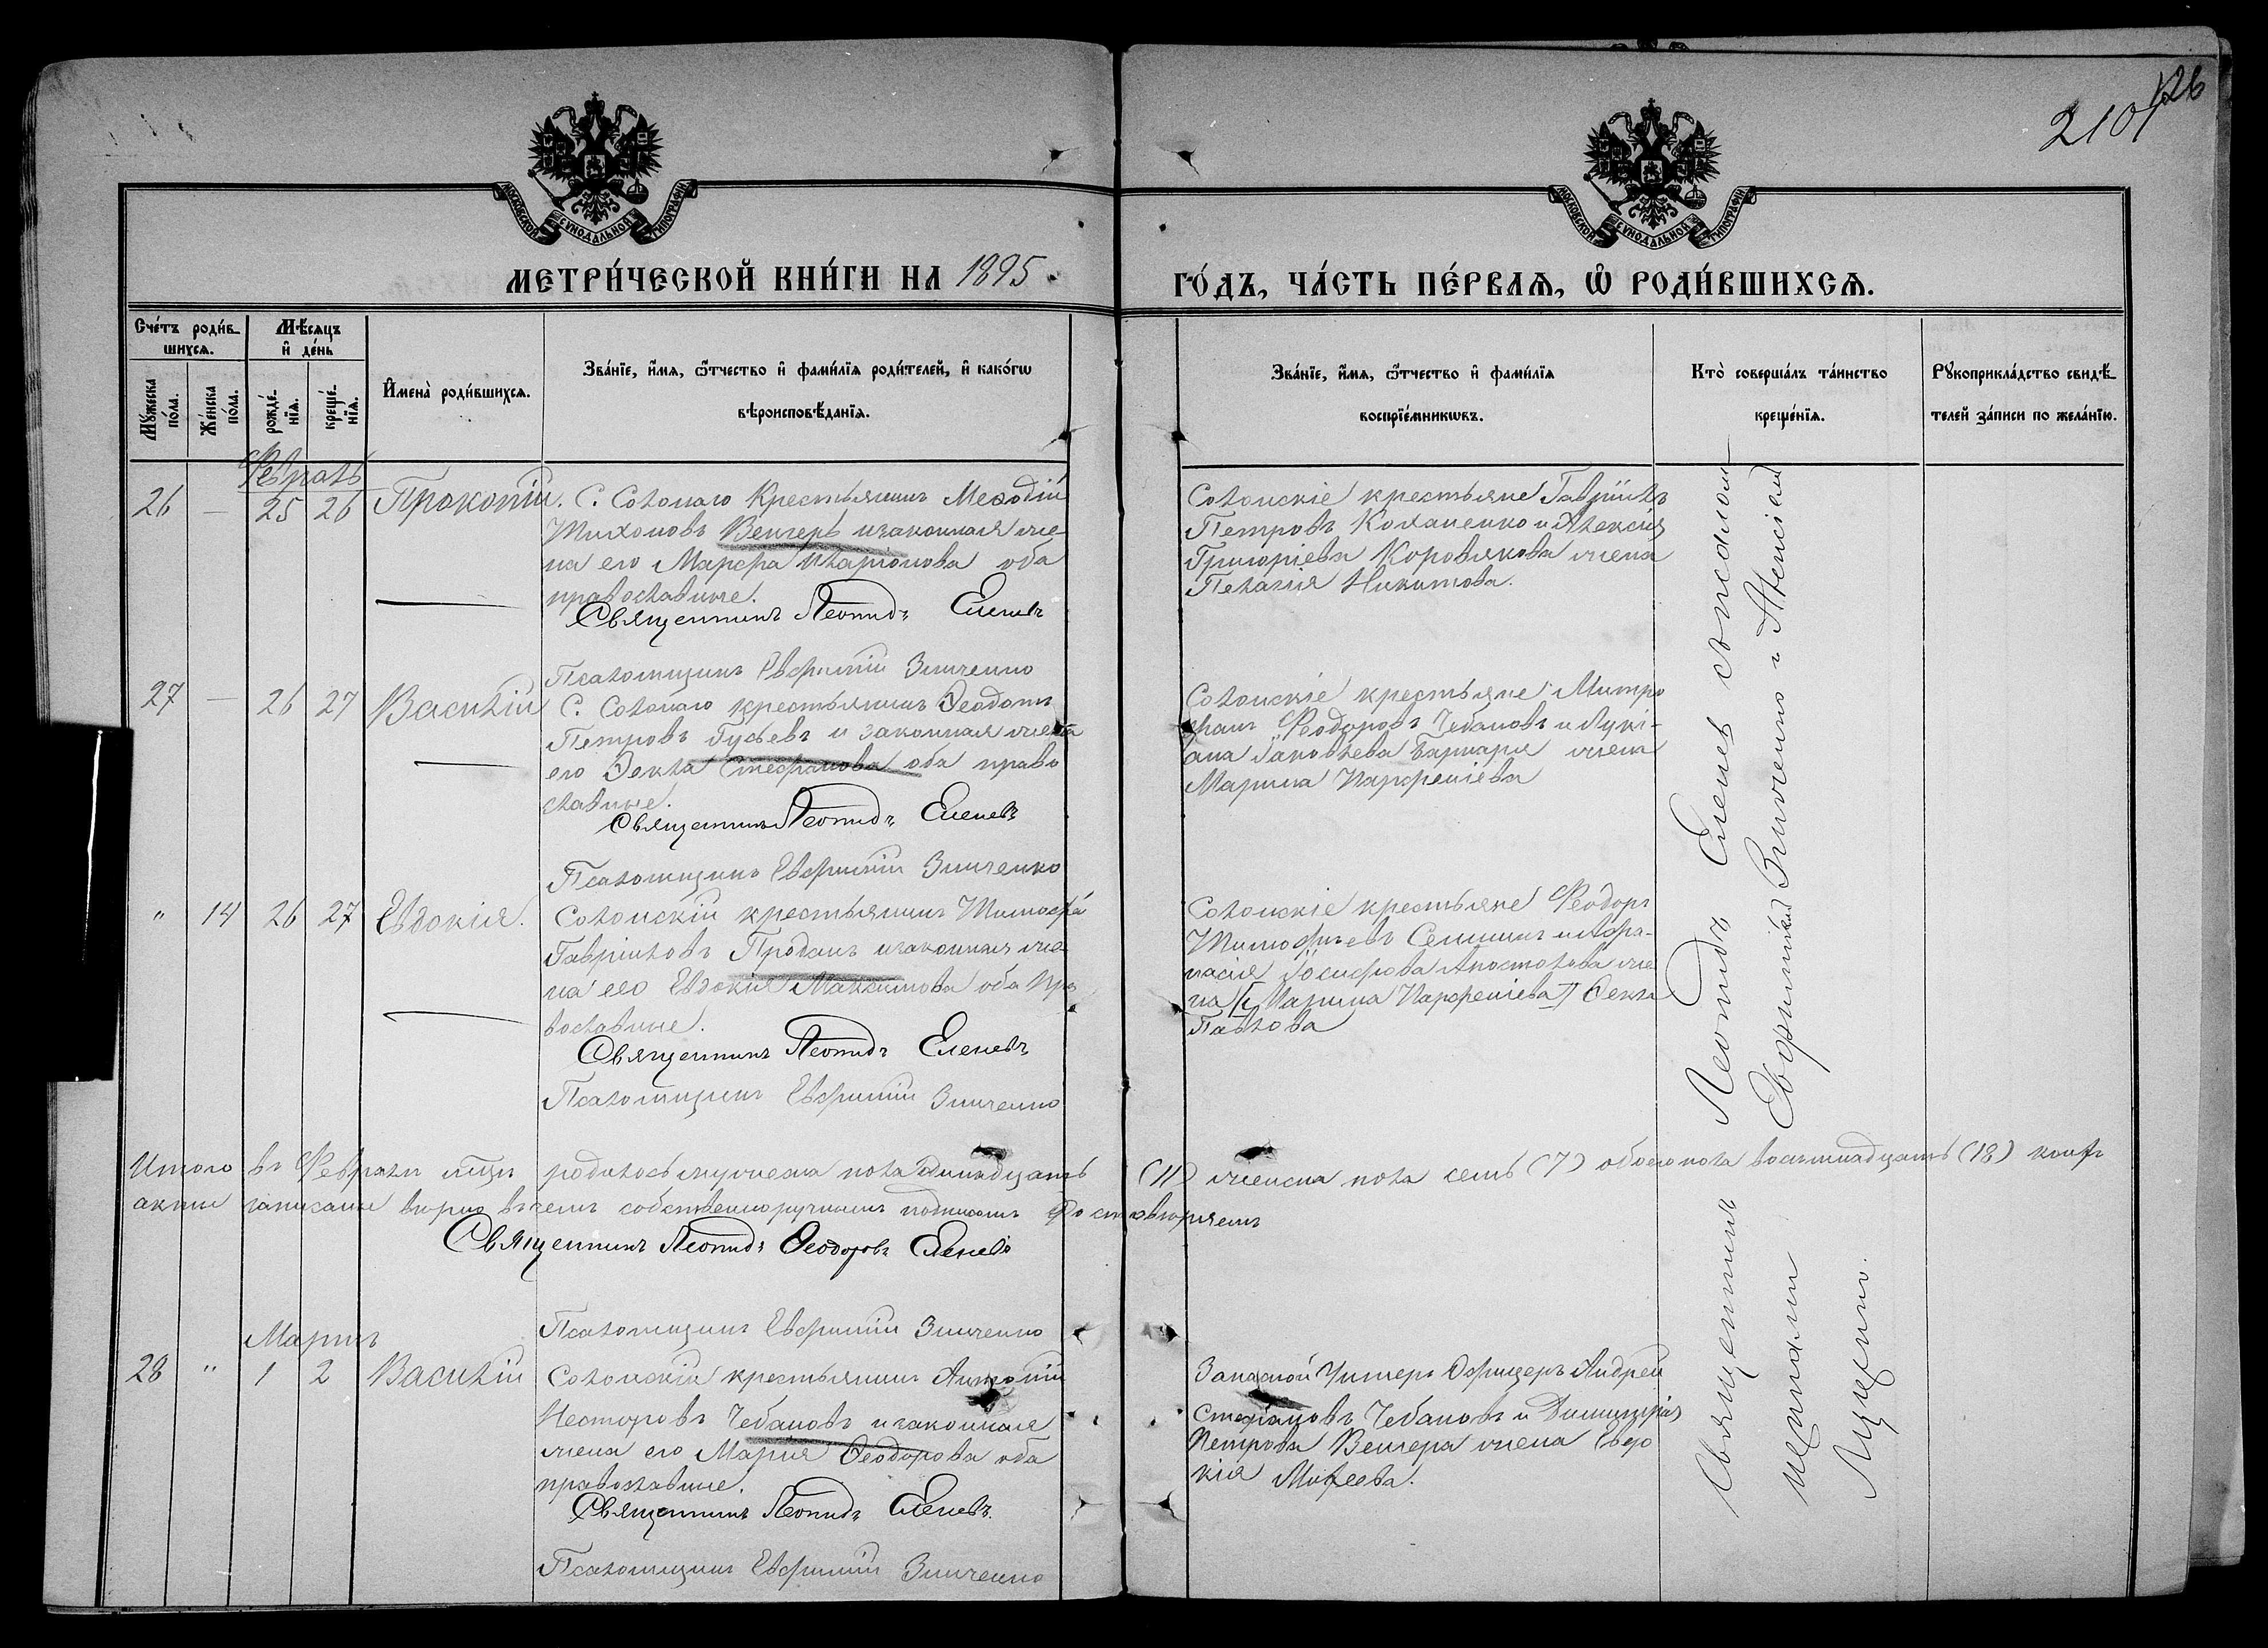 126
2101
МОСКОВСКОЙ СѴНОДАЛЬНОЙ ТИПОГРАФІИ
МОСКОВСКОЙ СѴНОДАЛЬНОЙ ТИПОГРАФІИ
МЕТРИ́ЧЕСКОЙ КНИ́ГИ НА 1895
ГО́ДЪ, ЧА́СТЬ ПЕ́РВАѦ, Ѽ РОДИ́ВШИХСѦ.
Сче́тъ роди́в-
шихсѧ.
Мꙋ́жеска по́ла.
Же́нска по́ла.
Мѣ́сѧцъ
и҆ де́нь
рожде́-
нїѧ.
креще́-
нїѧ.
И҆мена̀ роди́вшихсѧ.
Зва́нїе, и҆́мѧ, ѻ҆́тчество и҆ фами́лїѧ роди́телей, и҆ како́гѡ
вѣроисповѣ́данїѧ.
Зва́нїе, и҆́мѧ, ѻ҆́тчество и҆ фами́лїѧ
воспрїе́мникѡвъ.
Кто̀ соверша́лъ та́инство
креще́нїѧ.
Рꙋкоприкла́дство свидѣ́-
телей за́писи по жела́нїю.
Февраль
26 — 25 26 Прокопій.
С. Солонаго Крестьянинъ Меѳодій
Тихоновъ Венгеръ и законная же-
на его Марфа Иларіонова оба
православные.
Священникъ Леонидъ Еленевъ
Псаломщикъ Евфимій Зинченко
Солонскіе крестьяне Гавріилъ
Петровъ Коханенко и Алексія
Григоріева Коровякова жена
Пелагія Никитова.
27 — 26 27 Василій
С. Солонаго крестьянинъ Ѳеодотъ
Петровъ Гусьевъ и законная жена
его Ѳекла Стефанова оба право
славные.
Священникъ Леонидъ Еленевъ
Псаломщикъ Евфимій Зинченко
Солонскіе крестьяне Митро
фанъ Феодоровъ Чебановъ и Лукі-
ана Іаковлева Бырнаря жена
Марина Парфеніева
" 14 26 27 Евдокія.
Солонскій крестьянинъ Тимофѣ
Гавріиловъ Проданъ и законная же
на его Евдокія Максимова оба пра
вославные.
Священникъ Леонидъ Еленевъ
Псаломщикъ Евфимій Зинченко
Солонскіе крестьяне Феодоръ
Тимофѣевъ Семинъ и Афа-
насія Іосифова Апостолова же
на [Марина Парфеніева] Ѳекла
Павлова
Итого въ Февралѣ мѣцѣ родилось мужеска пола одинадцать (11) женска пола семь (7) обоего пола восьмнадцать (18)
акты записаны вѣрно въ чемъ собственноручнымъ подписомъ удостовѣряемъ
Священникъ Леонидъ Ѳеодоровъ Еленевъ
Псаломщикъ Евфимій Зинченко
Мартъ
28 " 1 2 Василій
Солонскій крестьянинъ Антоній
Несторовъ Чебановъ и законная
жена его Марія Ѳеодорова оба
православные.
Священникъ Леонидъ Еленевъ.
Псаломщикъ Евфимій Зинченко
Запасной Унтеръ Офицеръ Андрей
Стефановъ Чебановъ и Димитрія
Петрова Венгера жена Евдо
кія Миѳеева.
Священникъ Леонидъ Еленевъ съ псалом-
щиками Евфиміемъ Зинченко и Алексіем